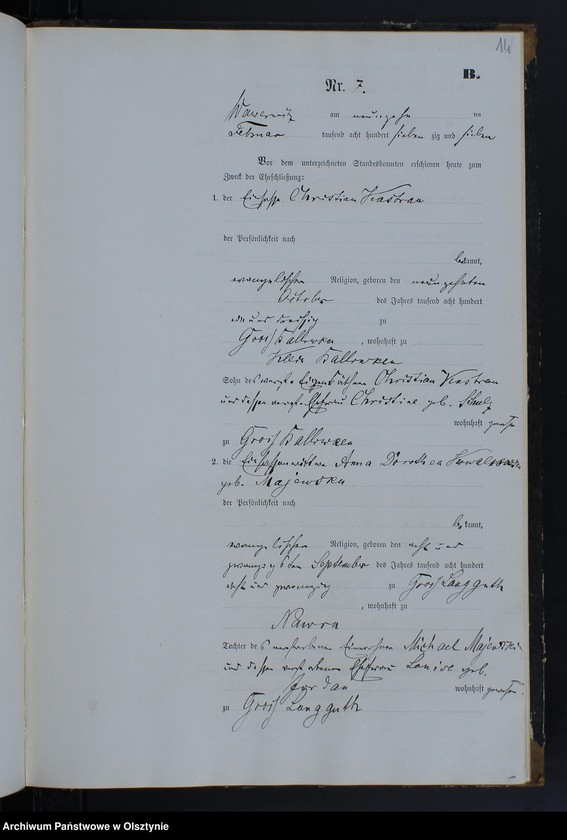 14
B.
Nr. 7.
am neunzehn ten
Februar tausend acht hundert sieben zig und sieben
Vor dem unterzeichneten Standesbeamten erschienen heute zum
Zweck der Eheschließung:
1. der Christian Kastran
der Persönlichkeit nach
bekannt,
evangelischer Religion, geboren den neunzehnten
October des Jahres tausend acht hundert
und dreißig zu
Groß Kallewken, wohnhaft zu
Klein Kallewken
Sohn des Christian Kastran
und dessen Ehefrau Christine geb. Schulz
wohnhaft gewesen
zu Groß Kallewken
2. die Anna Dorothea
geb. Majewska
der Persönlichkeit nach
bekannt,
evangelischer Religion, geboren den acht und
zwanzigsten September des Jahres tausend acht hundert
acht und zwanzig zu Groß Langguth
, wohnhaft zu
Nawra
Tochter des verstorbenen Einwohner Michael Majewski
und dessen verstorbenen Ehefrau Louise geb.
Jordan wohnhaft gewesen
zu Groß Langguth
Archiwum Państwowe w Olsztynie